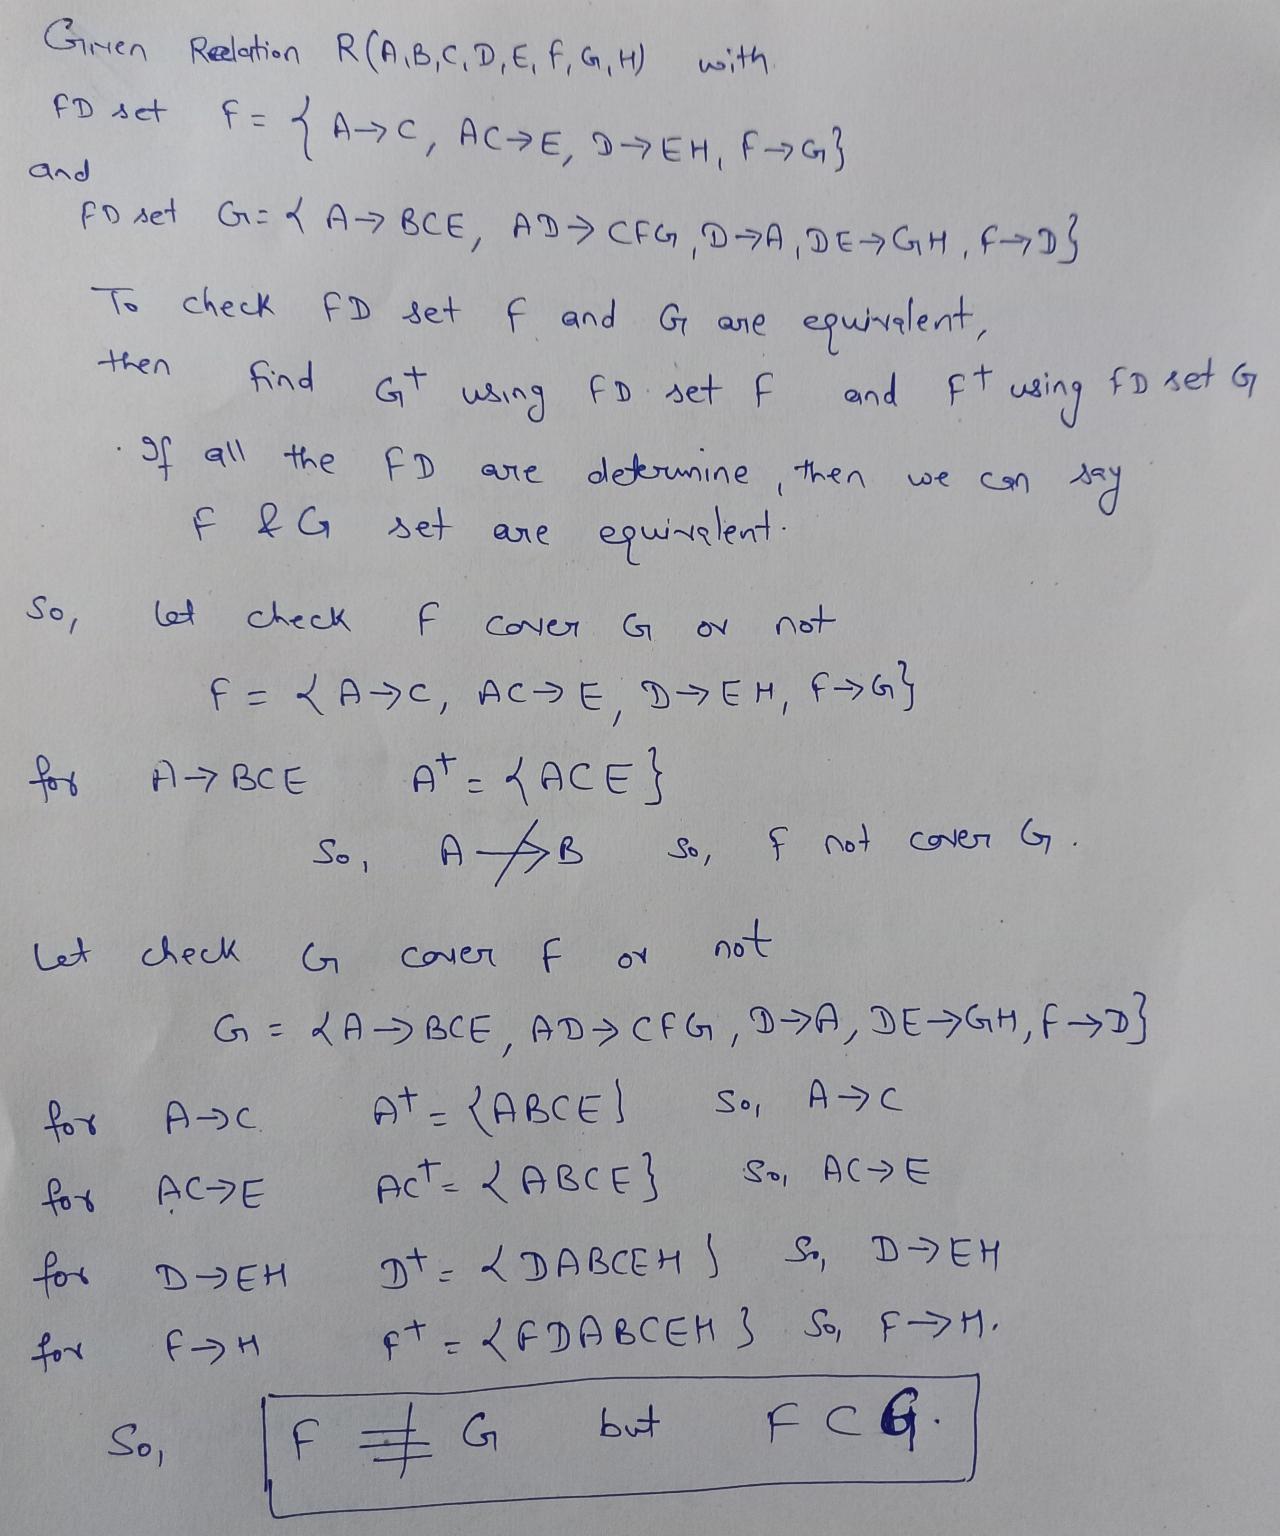 Given Relation R(A,B,C,D,E,F,G,H) with
FD set F = { A→C, AC→E, D→EH, F→G}
and
FD set G = { A→BCE, AD→CFG, D→A, DE→GH, F→D}
To check FD set F and G are equivalent,
then find G+ using FD set F and F+ using FD set G
If all the FD are determine, then we can say
F & G set are equivalent.
So, let check F cover G or not
F = { A→C, AC→E, D→EH, F→G}
for A→BCE A+ = {ACE}
So, A↛B So, F not cover G.
Let check G cover F or not
G = {A→BCE, AD→CFG, D→A, DE→GH, F→D}
for A→C A+ = {ABCE} So, A→C
for AC→E AC+ = {ABCE} So, AC→E
for D→EH D+ = {DABCEH} So, D→EH
for F→H F+ = {FDABCEH} So, F→H.
So, F ≢ G but F ⊂ G.